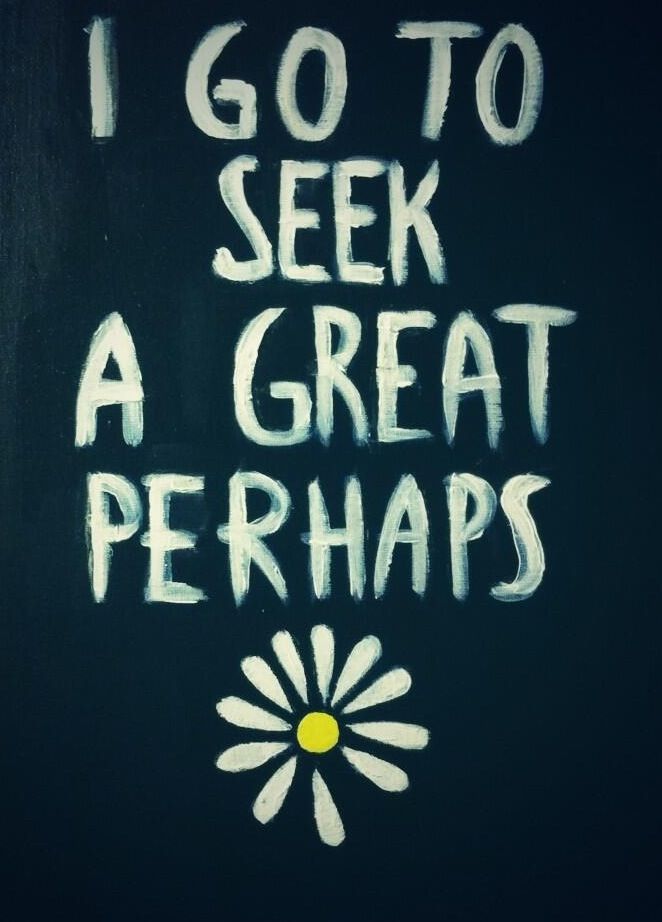 I GO TO
SEEK
A GREAT
PERHAPS